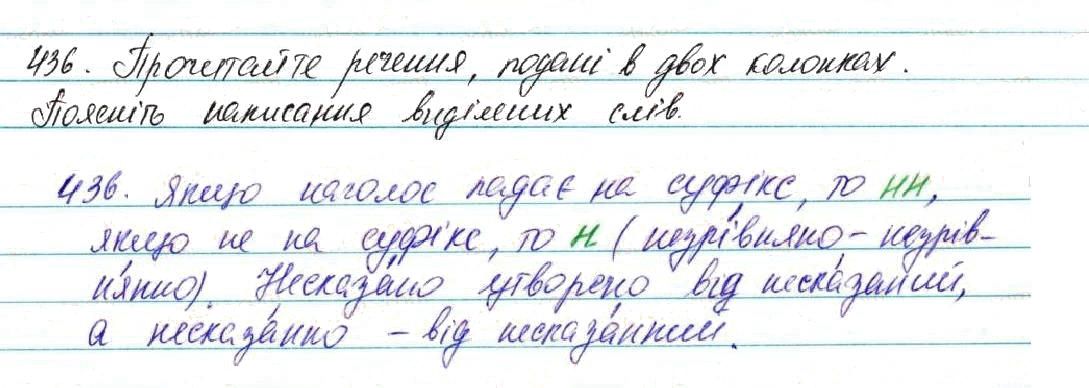 436. Прочитайте речення, подані в двох колонках.
Поясніть написання виділених слів.
436. Якщо наголос падає на суфікс, то нн,
якщо не на суфікс, то н (незрі́вняно – незрів-
ня́нно). Несказа́но утворено від неска́заний,
а несказа́нно – від несказа́нний.